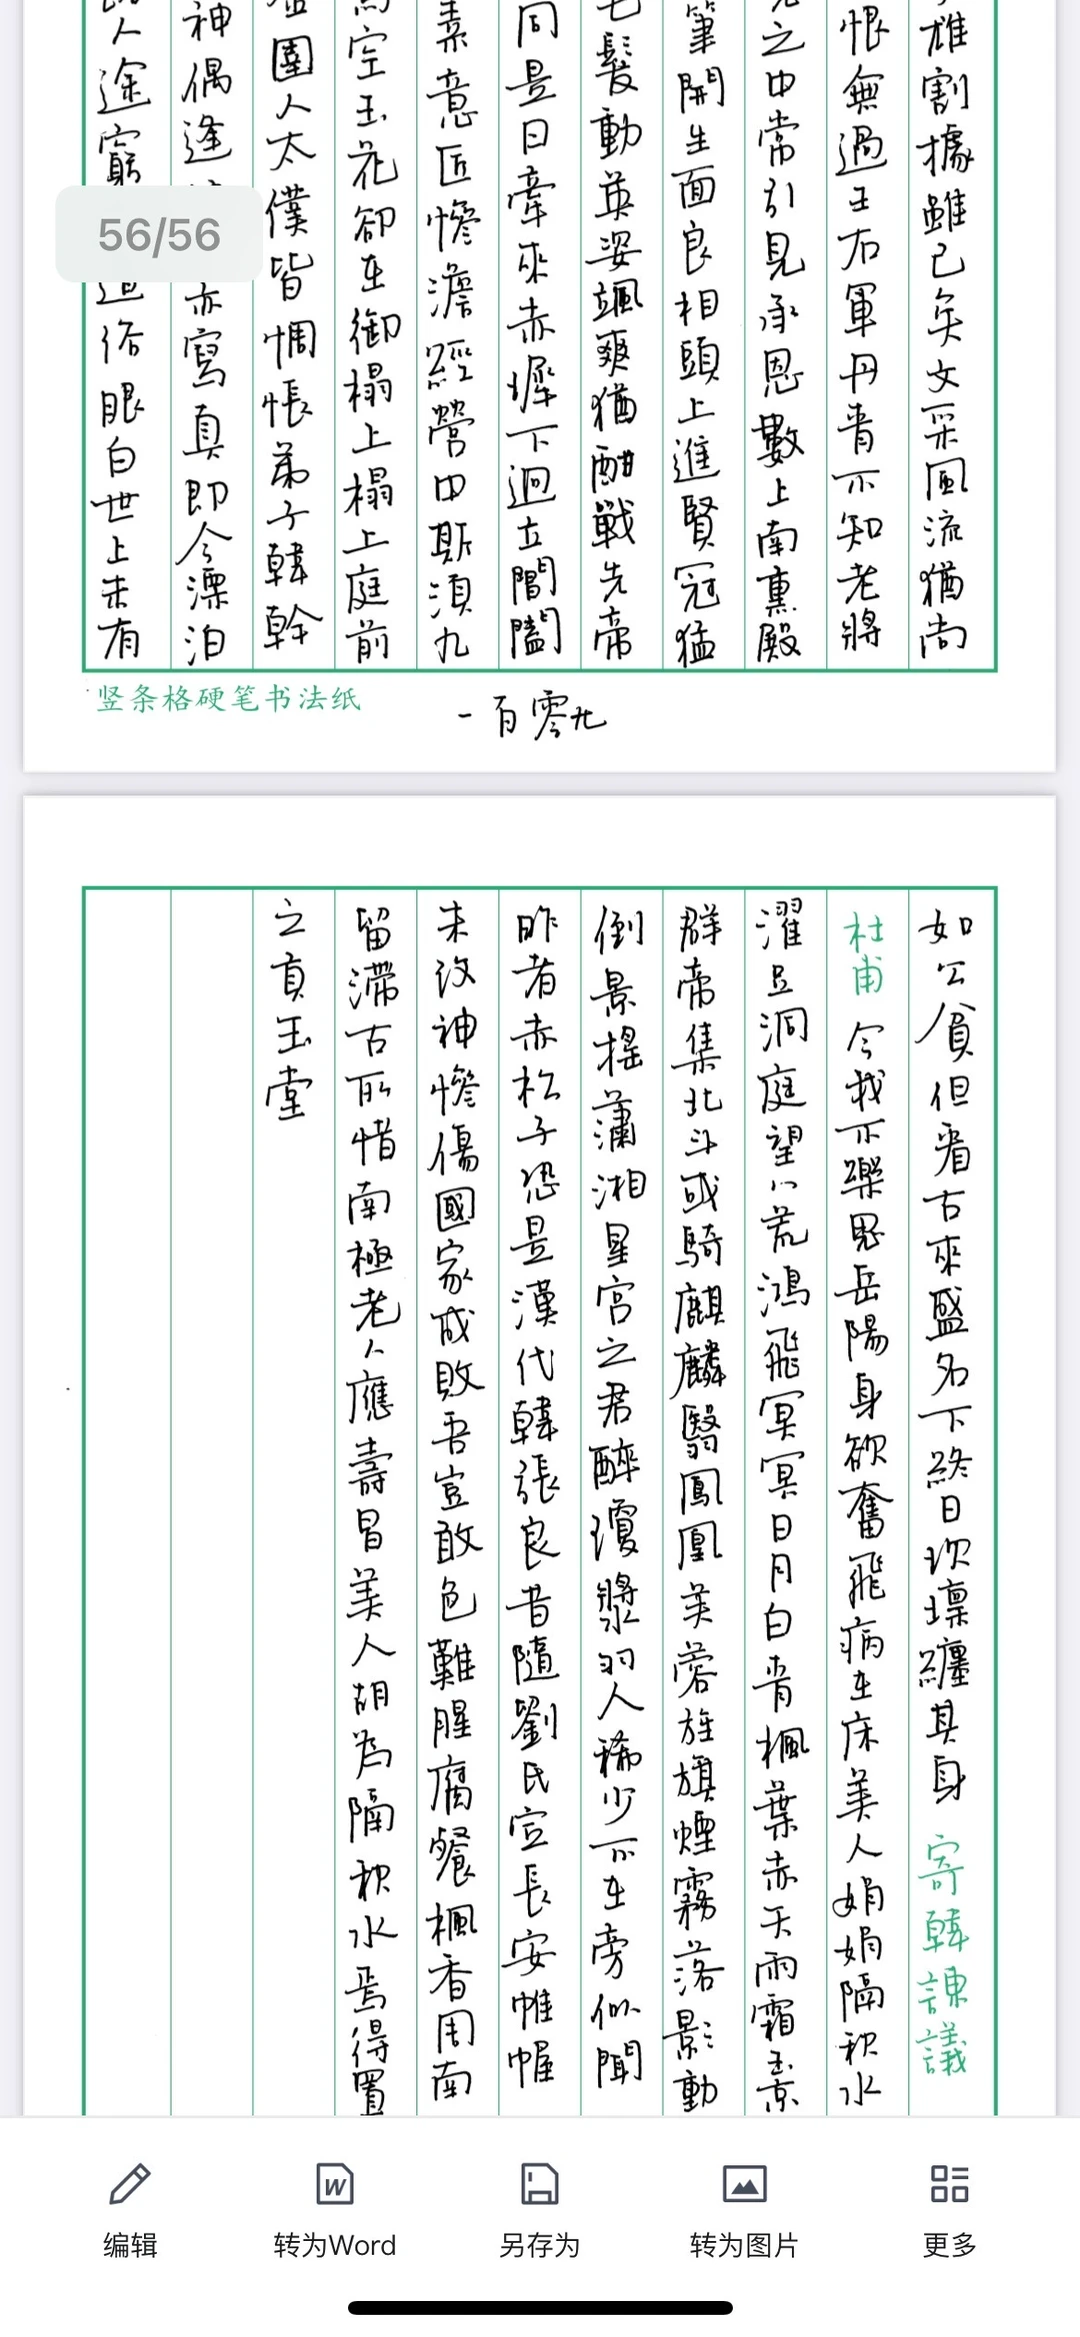 雄割據雖已矣文采風流猶尚
恨無過王右軍丹青不知老將
之中常引見承恩數上南熏殿
筆開生面良相頭上進賢冠猛
毛髮動英姿颯爽猶酣戰先帝
同是日牽來赤墀下迥立閶闔
素意匠慘澹經營中斯須九
馬空玉花卻在御榻上榻上庭前
圉人太僕皆惆悵弟子韓幹
神偶逢亦寫真即今漂泊
人途窮遭俗眼白世上未有
56/56
竖条格硬笔书法纸
一百零九
如公貧但看古來盛名下終日坎壈纏其身 寄韓諫議
杜甫 今我不樂思岳陽身欲奮飛病在床美人娟娟隔秋水
濯足洞庭望八荒鴻飛冥冥日月白青楓葉赤天雨霜玉京
群帝集北斗或騎麒麟翳鳳凰芙蓉旌旗煙霧落影動
倒景搖瀟湘星宮之君醉瓊漿羽人稀少不在旁似聞
昨者赤松子恐是漢代韓張良昔隨劉氏定長安帷幄
未改神慘傷國家成敗吾豈敢色難腥腐餐楓香周南
留滯古所惜南極老人應壽昌美人胡為隔秋水焉得置
之貢玉堂
编辑
转为Word
另存为
转为图片
更多